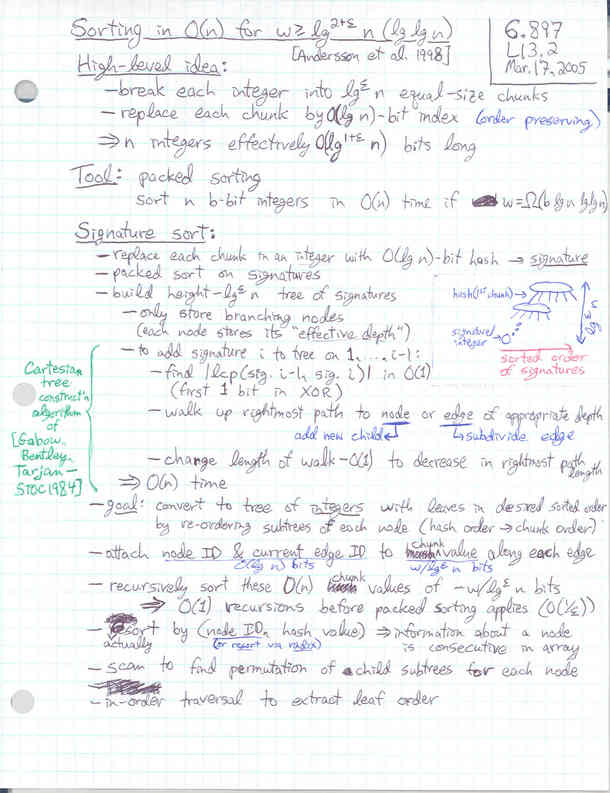 Sorting in O(n) for w ≥ lg^{2+ε} n (lg lg n)
[Andersson et al. 1998]
6.897
L13.2
Mar. 17, 2005
High-level idea:
– break each integer into lg^ε n equal-size chunks
– replace each chunk by O(lg n)-bit index (order preserving)
⇒ n integers effectively O(lg^{1+ε} n) bits long
Tool: packed sorting
sort n b-bit integers in O(n) time if w = Ω(b lg n lg lg n)
Signature sort:
– replace each chunk in an integer with O(lg n)-bit hash → signature
– packed sort on signatures
– build height-lg^ε n tree of signatures
– only store branching nodes
(each node stores its "effective depth")
hash(1st chunk) →
lg^ε n
signature/
integer →
sorted order
of signatures
– to add signature i to tree on 1,...,i-1:
– find |lcp(sig. i-1, sig. i)| in O(1)
(first 1 bit in XOR)
– walk up rightmost path to node or edge of appropriate depth
add new child ↵ ↳ subdivide edge
– change length of walk – O(1) to decrease in rightmost path length
⇒ O(n) time
Cartesian
tree
construct'n
algorithm
of
[Gabow,
Bentley,
Tarjan –
STOC 1984]
– goal: convert to tree of integers with leaves in desired sorted order
by re-ordering subtrees of each node (hash order → chunk order)
– attach node ID & current edge ID to chunk value along each edge
O(lg n) bits w/lg^ε n bits
– recursively sort these O(n) chunk values of ~w/lg^ε n bits
⇒ O(1) recursions before packed sorting applies (O(1/ε))
– sort by (node ID, hash value) ⇒ information about a node
actually (or resort via radix) is consecutive in array
– scan to find permutation of child subtrees for each node
– in-order traversal to extract leaf order